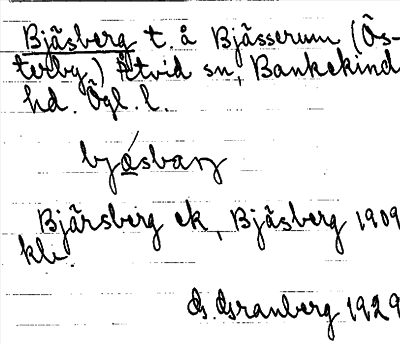 Bjäsberg t. å Bjässerum (Ös-
terby) Åtvid sn, Bankekind
hd. Ögl. l.
Bjärsberg ek, Bjäsberg 1909
kli.
G. Granberg 1929